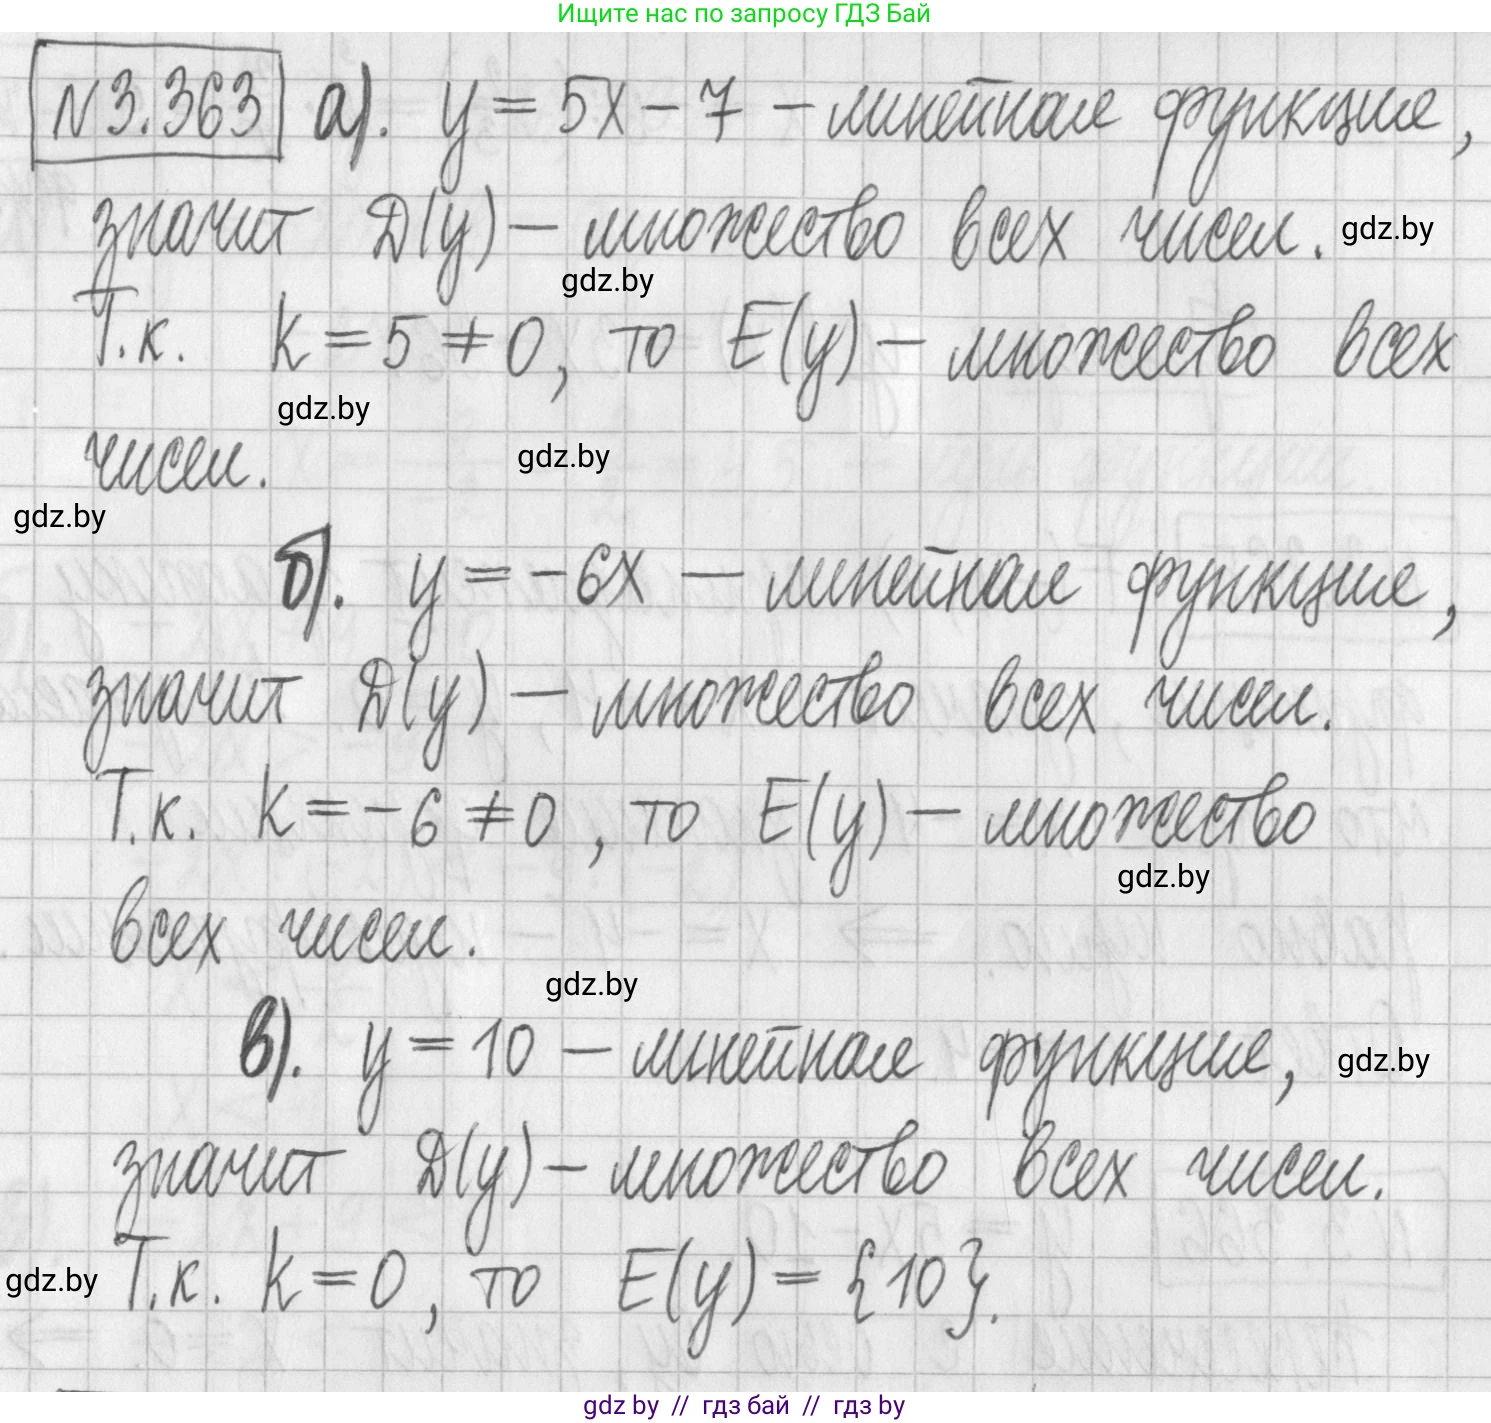 Ищите нас по запросу ГДЗ Бай
N3.363 а). y = 5x - 7 - линейная функция,
значит D(y) - множество всех чисел. gdz.by
gdz.by
Т.к. k = 5 ≠ 0, то E(y) - множество всех
gdz.by
чисел. gdz.by
gdz.by
б). y = -6x - линейная функция,
значит D(y) - множество всех чисел.
Т.к. k = -6 ≠ 0, то E(y) - множество
gdz.by
всех чисел.
gdz.by
в). y = 10 - линейная функция, gdz.by
значит D(y) - множество всех чисел.
gdz.by Т.к. k = 0, то E(y) = {10}.
gdz.by // гдз бай // гдз by